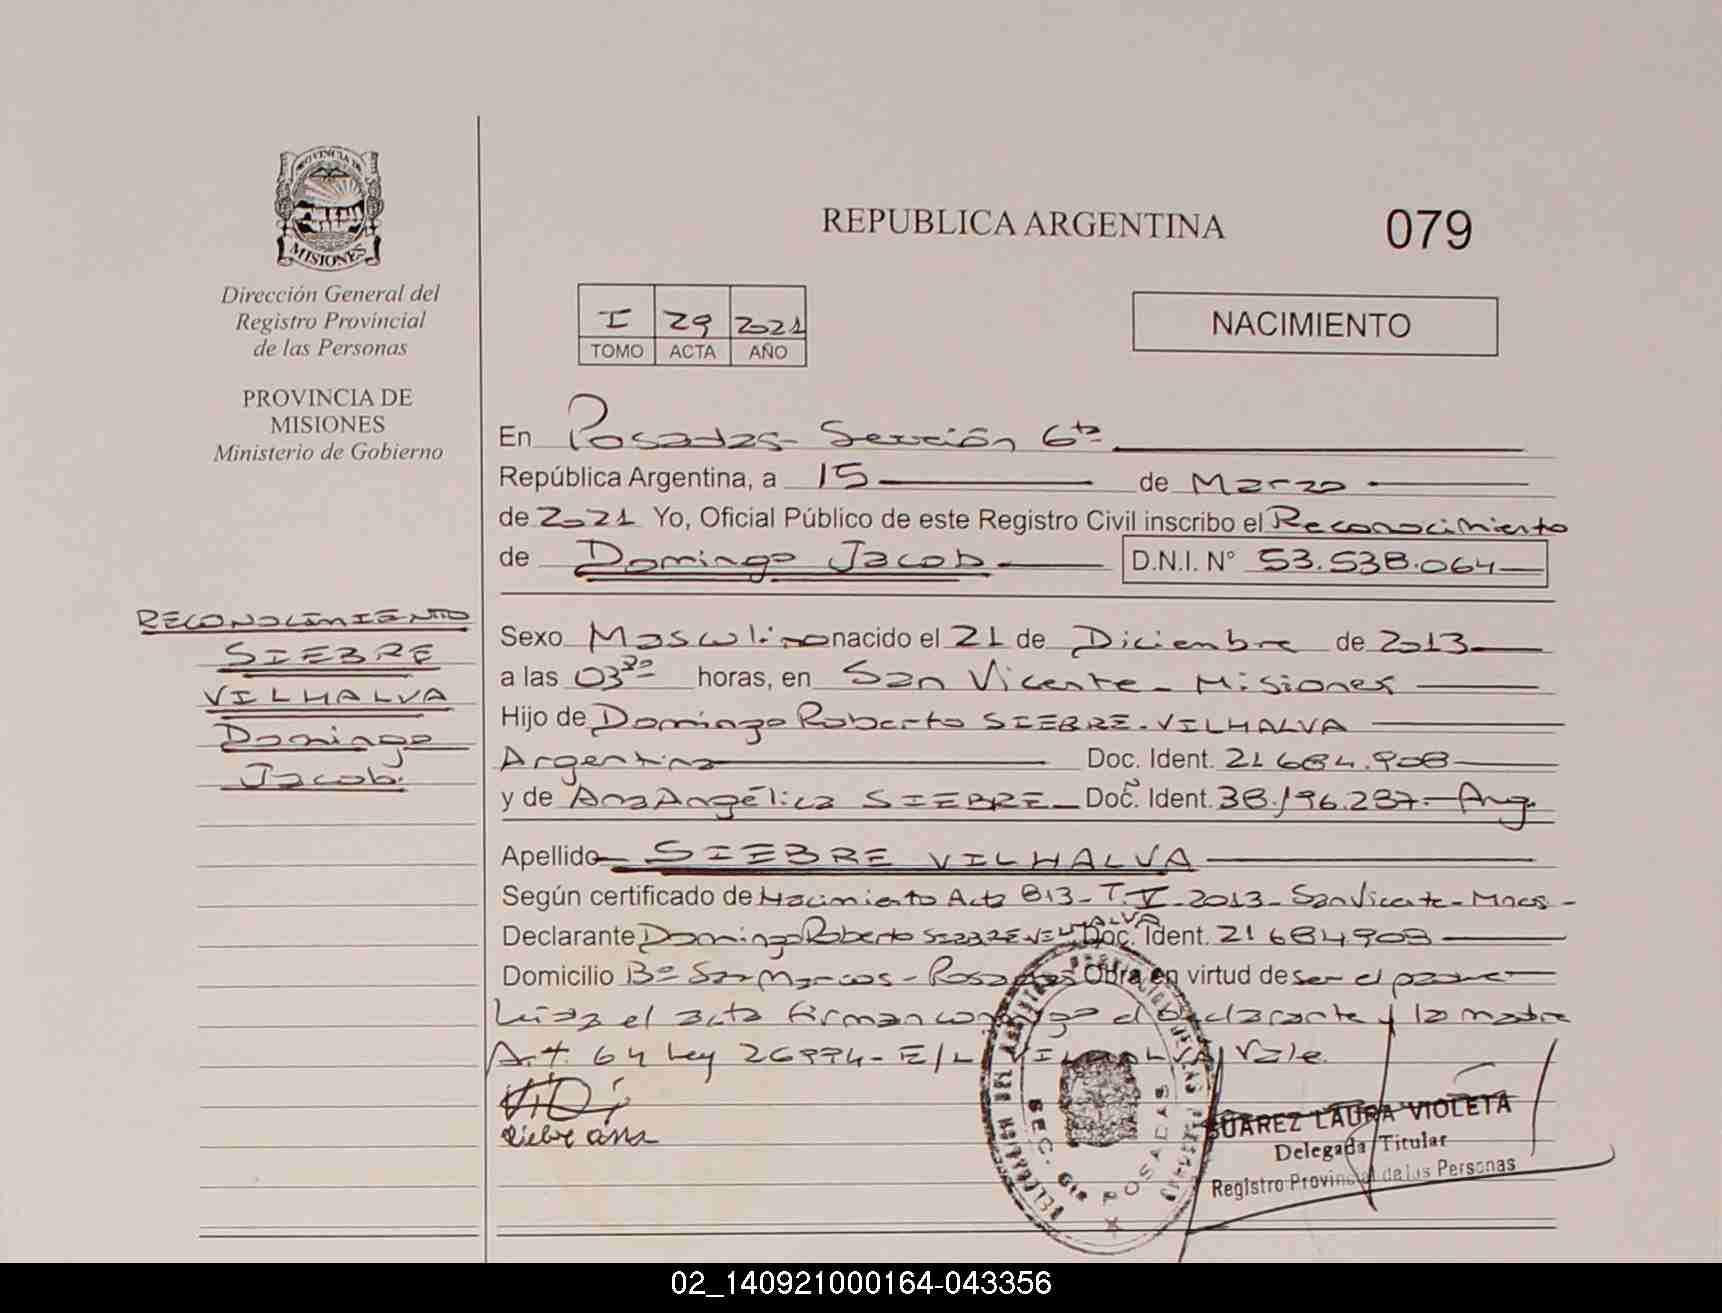 PROVINCIA DE
MISIONES
Dirección General del
Registro Provincial
de las Personas
PROVINCIA DE
MISIONES
Ministerio de Gobierno
RECONOCIMIENTO
SIEBRE
VILHALVA
Domingo
Jacob.
REPUBLICA ARGENTINA
079
I 29 2021
TOMO ACTA AÑO
NACIMIENTO
En Posadas- Sección 6ta
República Argentina, a 15 de Marzo
de 2021 Yo, Oficial Público de este Registro Civil inscribo el Reconocimiento
de Domingo Jacob D.N.I. N° 53.538.064
Sexo Masculino nacido el 21 de Diciembre de 2013
a las 03 30 horas, en San Vicente - Misiones
Hijo de Domingo Roberto SIEBRE-VILHALVA
Argentina Doc. Ident. 21 684.908
y de Ana Angélica SIEBRE Doc. Ident. 38.196.287.- Arg.
Apellido SIEBRE VILHALVA
Según certificado de Nacimiento Acta 813- T.V-2013- San Vicente- Mnes-
Declarante Domingo Roberto SIEBRE VILHALVA Doc. Ident. 21 684.908
Domicilio Bº San Marcos - Posadas Obra en virtud de ser el padre
Leída el acta firman conmigo el declarante y la madre
Art 64 Ley 26994- E/L VILHALVA Vale.
Siebre Ana
SEC. 6ta POSADAS
SUAREZ LAURA VIOLETA
Delegada Titular
Registro Provincial de las Personas
02_140921000164-043356